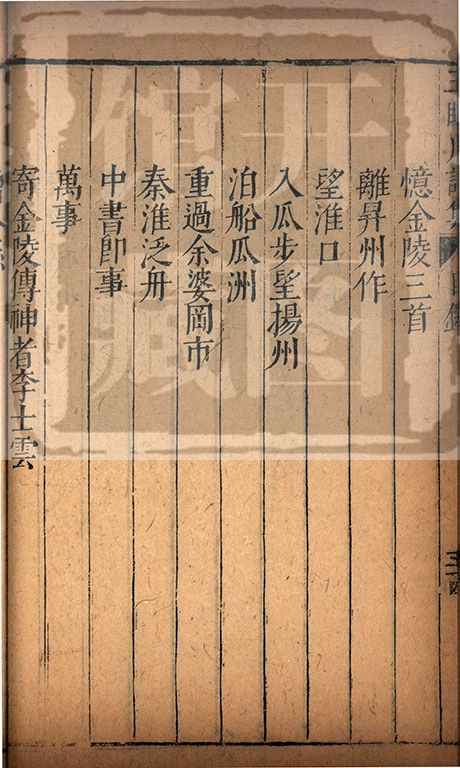 憶金陵三首
離昇州作
望淮口
入瓜步望揚州
泊船瓜洲
重過余婆岡市
秦淮泛舟
中書卽事
萬事
寄金陵傳神者李士雲